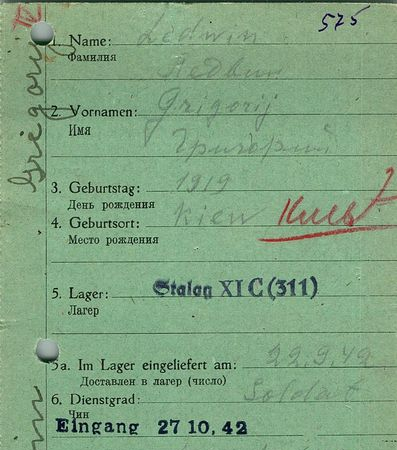 575
1. Name: Ledwin
Фамилия
Ледвин
2. Vornamen: Grigorij
Имя
Григорий
3. Geburtstag: 1919
День рождения
4. Geburtsort: Kiew Киев
Место рождения
5. Lager: Stalag XI C (311)
Лагер
5a. Im Lager eingeliefert am: 22.9.42
Доставлен в лагер (число)
6. Dienstgrad: Soldat
Чин
Eingang 27 10. 42
Grigorij